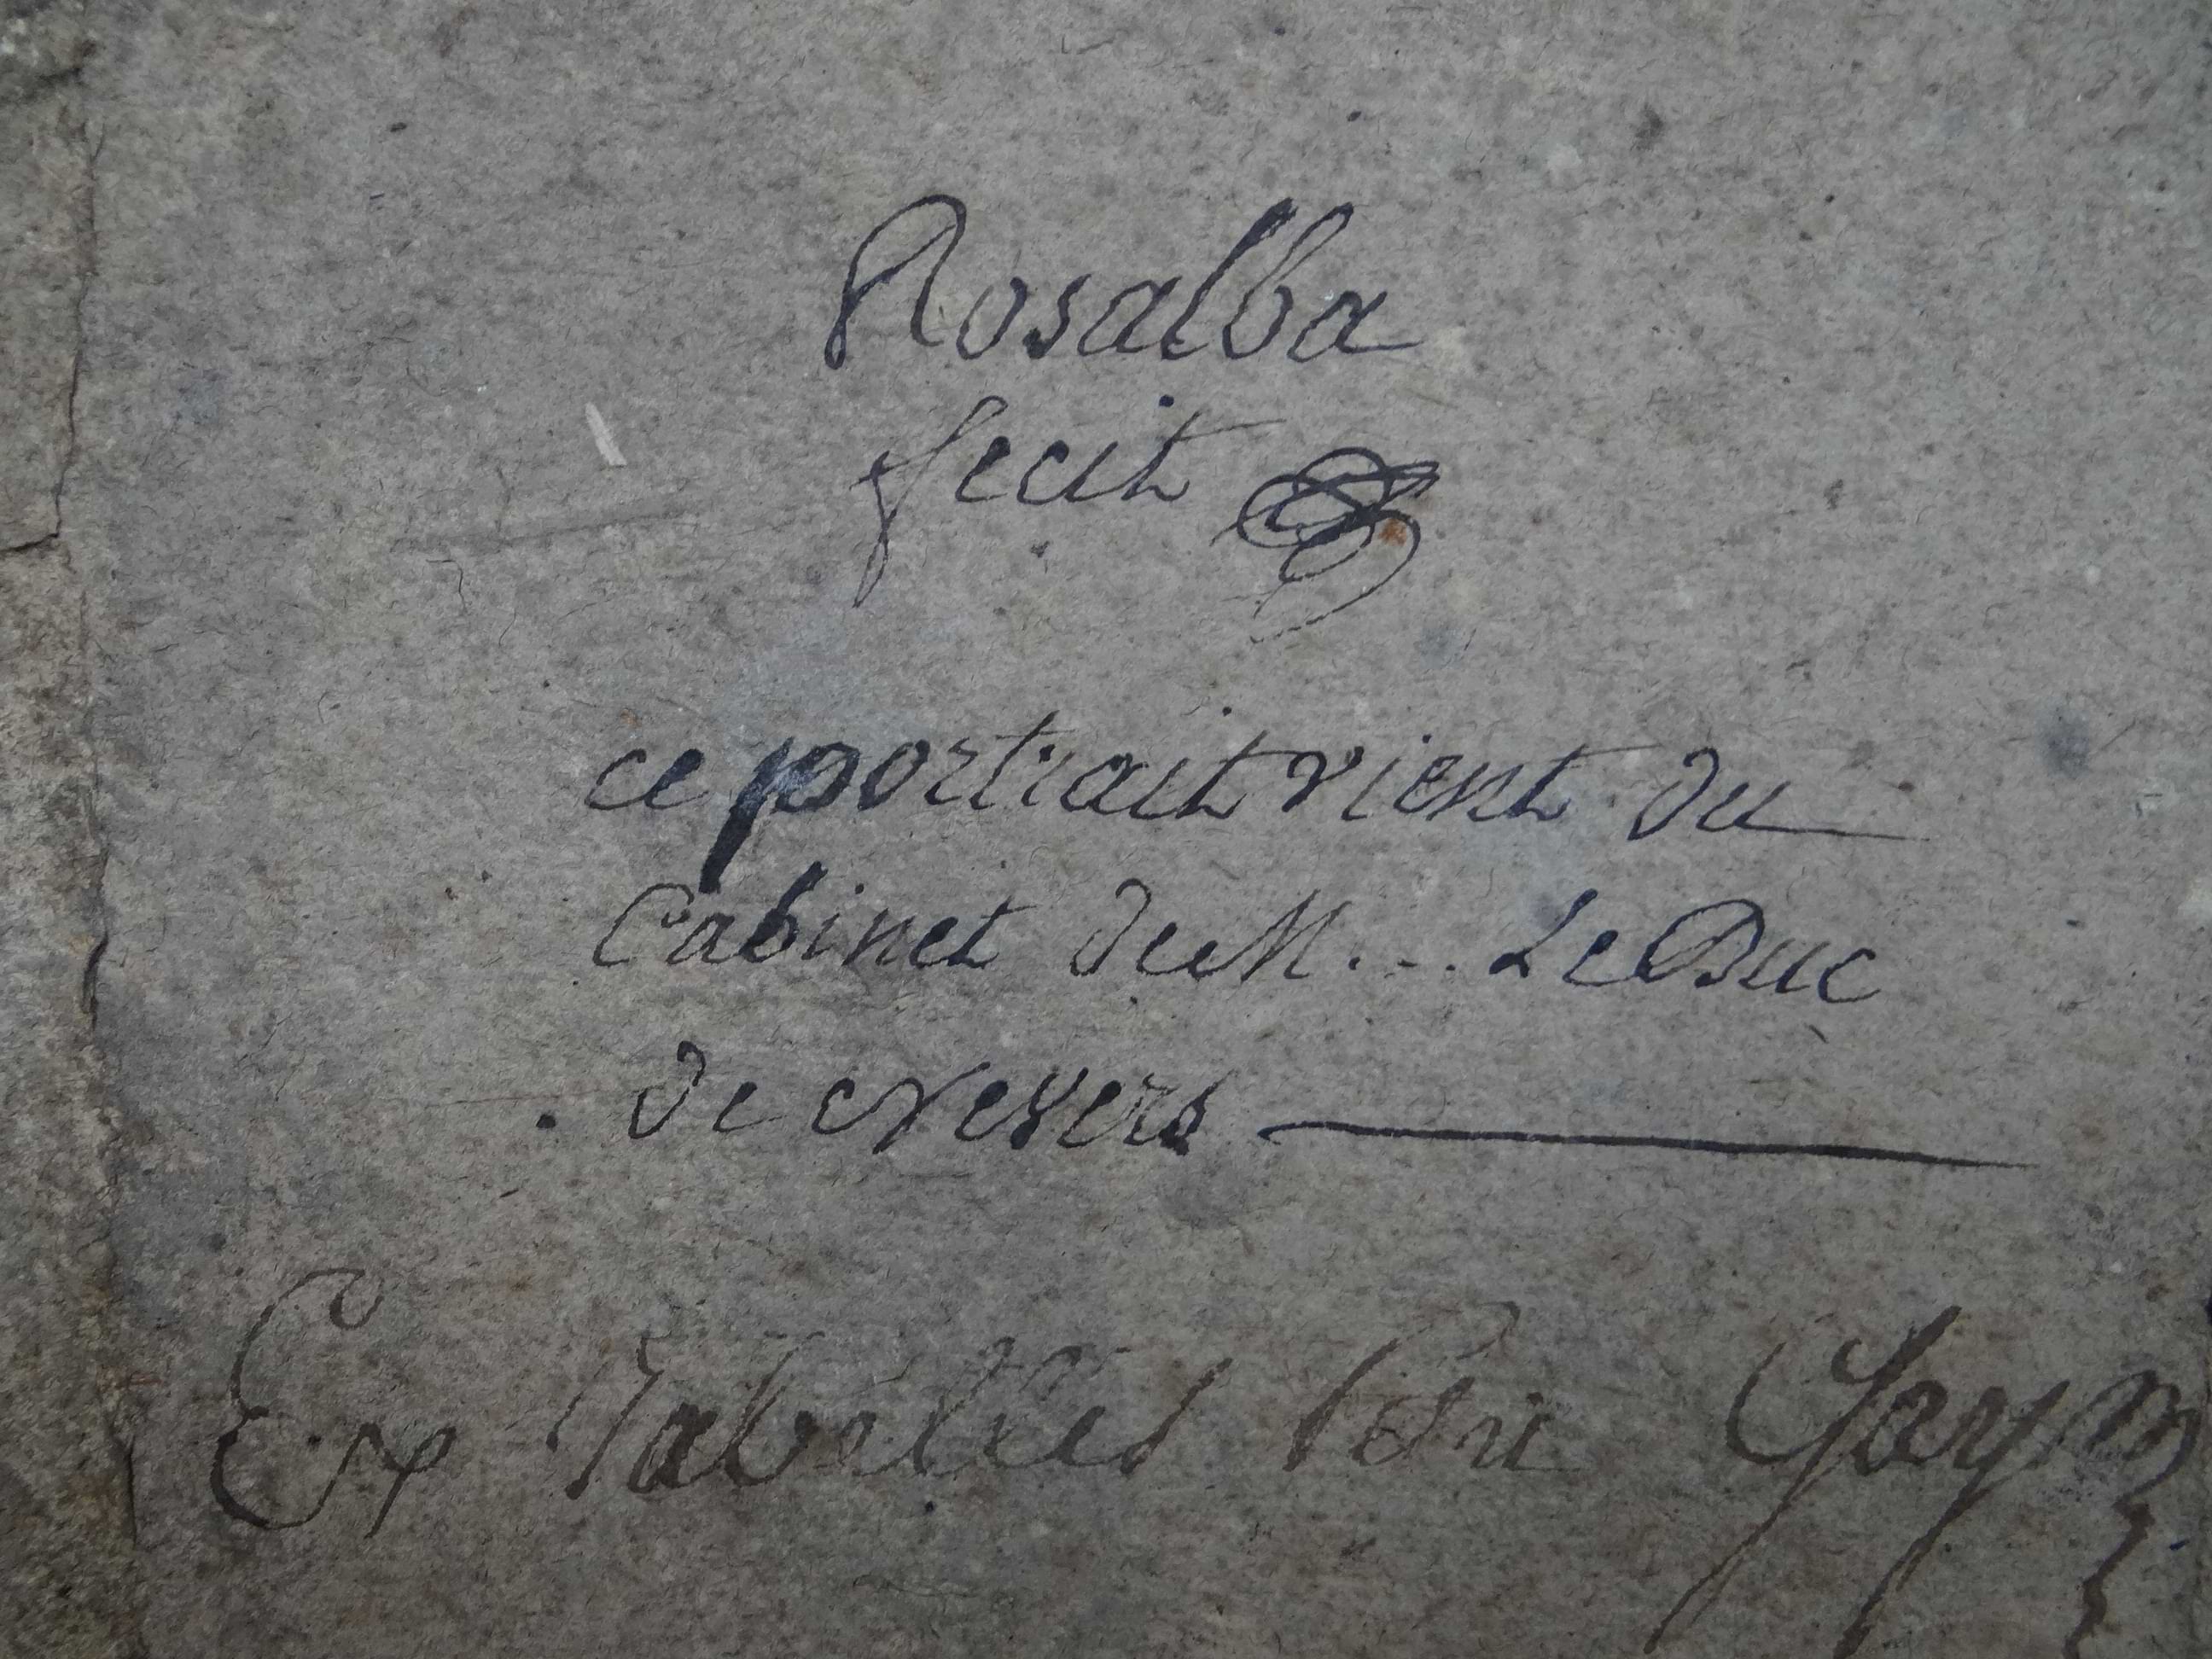 Rosalba
fecit
ce portrait vient du
Cabinet de M.... Le Duc
de Nevers
Ex Tabellis